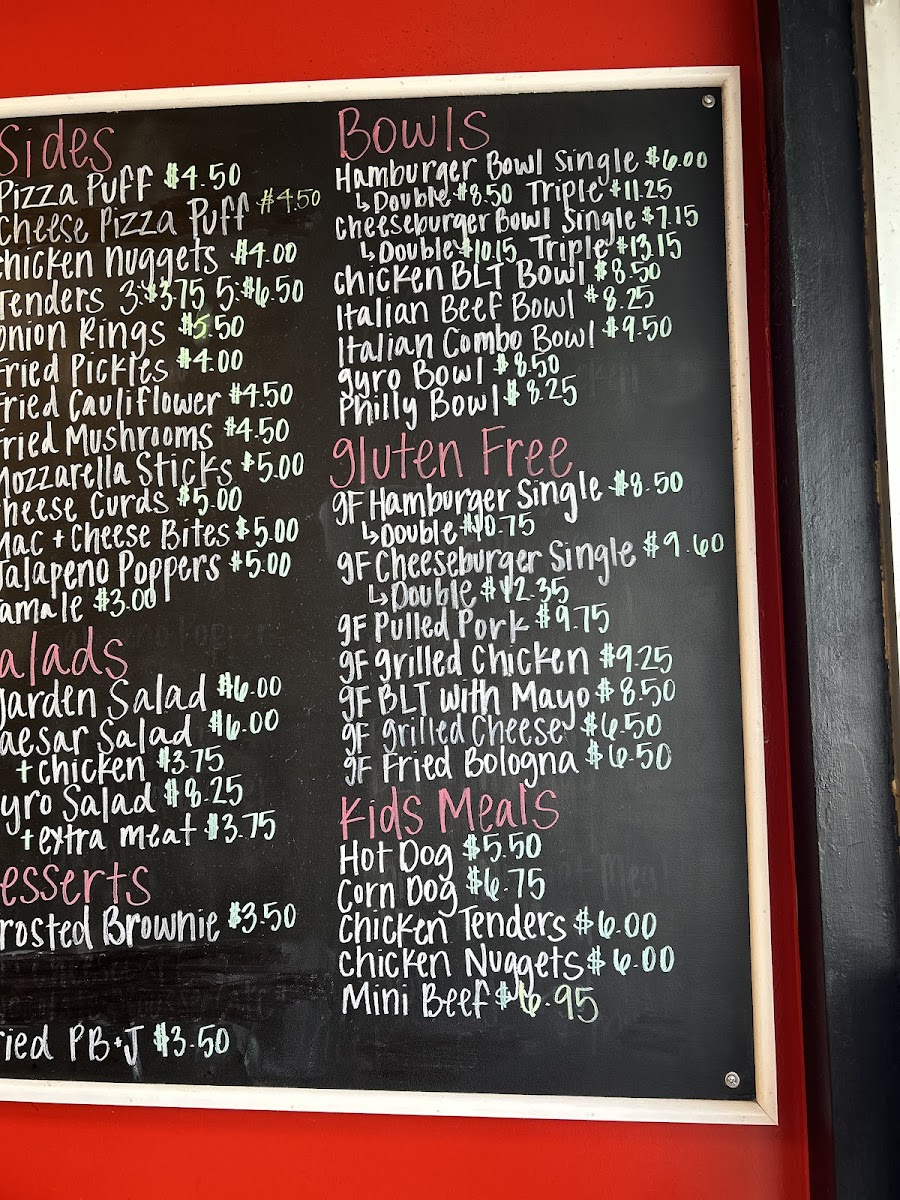 Sides
Pizza Puff $4.50
Cheese Pizza Puff $4.50
Chicken Nuggets $4.00
Tenders 3:$3.75 5:$6.50
Onion Rings $5.50
Fried Pickles $4.00
Fried Cauliflower $4.50
Fried Mushrooms $4.50
Mozzarella Sticks $5.00
heese Curds $5.00
Mac + Cheese Bites $5.00
Jalapeno Poppers $5.00
amale $3.00
alads
Garden Salad $6.00
aesar Salad $6.00
+ chicken $3.75
yro Salad $8.25
+ extra meat $3.75
esserts
rosted Brownie $3.50
ried PB+J $3.50
Bowls
Hamburger Bowl Single $6.00
↳Double $8.50 Triple $11.25
Cheeseburger Bowl Single $7.15
↳Double $10.15 Triple $13.15
Chicken BLT Bowl $8.50
Italian Beef Bowl $8.25
Italian Combo Bowl $9.50
gyro Bowl $8.50
Philly Bowl $8.25
gluten Free
gF Hamburger Single $8.50
↳Double $10.75
gF Cheeseburger Single $9.60
↳Double $12.35
gF Pulled Pork $9.75
gF grilled Chicken $9.25
gF BLT with Mayo $8.50
gF grilled Cheese $6.50
gF Fried Bologna $6.50
Kids Meals
Hot Dog $5.50
Corn Dog $6.75
Chicken Tenders $6.00
Chicken Nuggets $6.00
Mini Beef $6.95